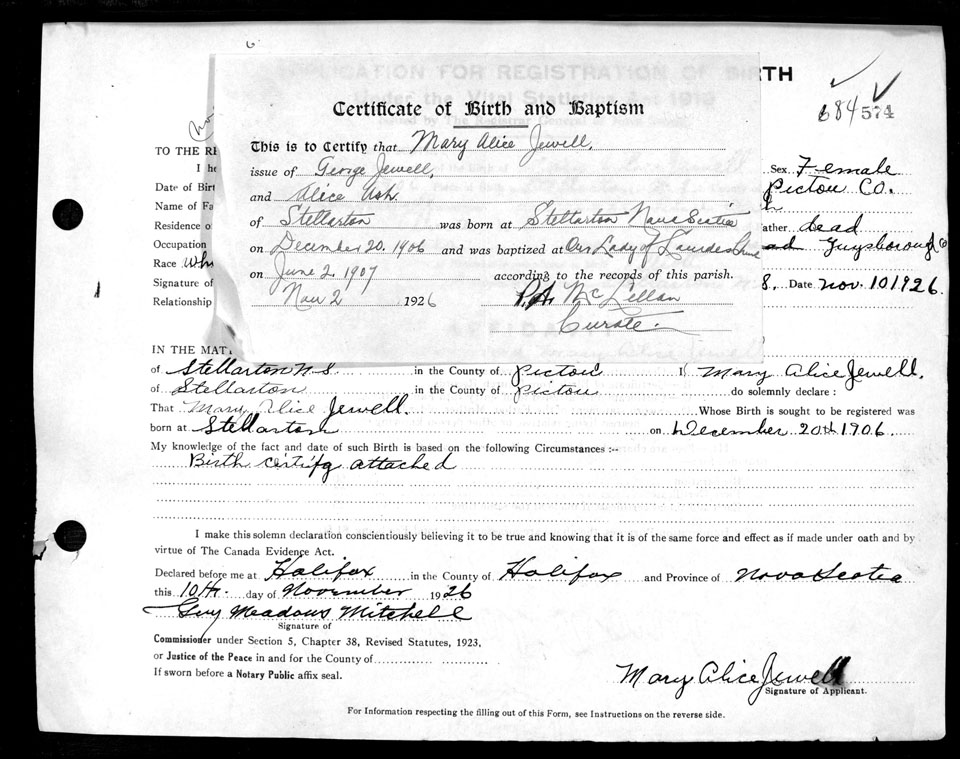 RTH
684 574
Certificate of Birth and Baptism
This is to Certify that Mary Alice Jewell,
issue of George Jewell,
and Alice Ash
of Stellarton was born at Stellarton Nova Scotia
on December 20, 1906 and was baptized at Our Lady of Lourdes
on June 2, 1907 according to the records of this parish.
Nov 2 1926 P.A. McLellan
Curate.
TO THE RE
I he Sex Female
Date of Birt Pictou Co.
Name of Fa
Residence o ather dead
Occupation Guysborough Co
Race Whi
Signature of 8. Date Nov. 10 1926.
Relationship
IN THE MAT
of Stellarton N.S. in the County of Pictou I, Mary Alice Jewell,
of Stellarton in the County of Pictou do solemnly declare :
That Mary Alice Jewell. Whose Birth is sought to be registered was
born at Stellarton on December 20th 1906.
My knowledge of the fact and date of such Birth is based on the following Circumstances :-
Birth certifg attached
I make this solemn declaration conscientiously believing it to be true and knowing that it is of the same force and effect as if made under oath and by
virtue of The Canada Evidence Act.
Declared before me at Halifax in the County of Halifax and Province of Nova Scotia
this 10th. day of November 1926
Guy Meadows Mitchell
Signature of
Commissioner under Section 5, Chapter 38, Revised Statutes, 1923,
or Justice of the Peace in and for the County of
If sworn before a Notary Public affix seal.
Mary Alice Jewell
Signature of Applicant.
For Information respecting the filling out of this Form, see Instructions on the reverse side.